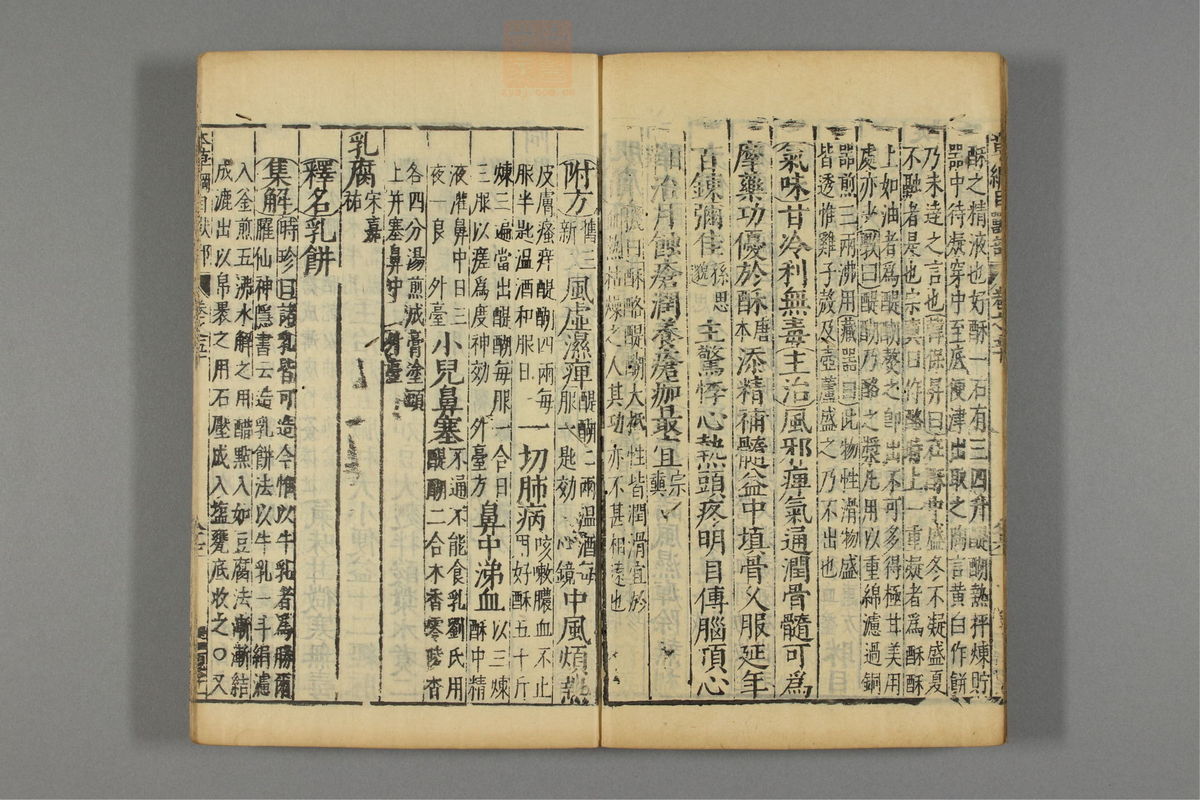 酥之精液也好酥一石有三四升醍醐熟抨煉貯
器中待凝穿中至底便津出取之陶言黄白作餅
乃未達之言也韓保昇曰在酥中盛冬不凝盛夏
不融者是也宗奭曰作酪時上一重凝者爲酥酥
上如油者爲醍醐熬之卽出不可多得極甘美用
處亦少斆曰醍醐乃酪之漿凡用以重綿濾過銅
器煎三兩沸用藏器曰此物性滑物盛
皆透惟雞子殼及壺蘆盛之乃不出也
氣味甘冷利無毒主治風邪痺氣通潤骨髓可爲
摩藥功優於酥唐本添精補髓益中填骨久服延年
百鍊彌佳孫思邈主驚悸心熱頭疼明目傅腦頂心
治月蝕瘡潤養瘡痂最宜宗奭
曰酥酪醍醐大抵性皆潤滑宜於
枯燥之人其功亦不甚相遠也
附方舊三新風虛濕痺醍醐二兩溫酒每服一匙效心鏡中風煩熱
皮膚瘙痒醍醐四兩每服半匙溫酒和服日一切肺病咳嗽膿血不止用好酥五十斤
煉三遍當出醍醐每服一合日三服以瘥爲度神効外臺方鼻中涕血以三煉酥中精
液灌鼻中日三夜一良外臺小兒鼻塞不通不能食乳劉氏用醍醐二合木香零陵香
各四分湯煎成膏塗頭上并塞鼻中外臺
乳腐宋嘉祐
釋名乳餅
集解時珍曰諸乳皆可造今惟以牛乳者爲勝爾臞仙神隱書云造乳餅法以牛乳一斗絹濾
入釜煎五沸水解之用醋點入如豆腐法漸漸結
成漉出以帛裹之用石壓成入鹽甕底收之〇又